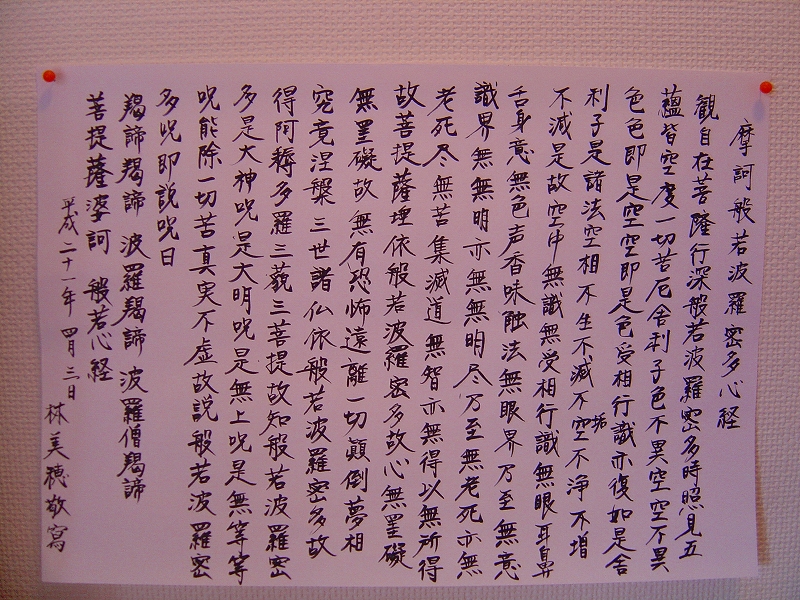 摩訶般若波羅密多心経
観自在菩薩行深般若波羅密多時照見五
蘊皆空度一切苦厄舎利子色不異空空不異
色色即是空空即是色受相行識亦復如是舎
利子是諸法空相不生不滅不垢不浄不増
不減是故空中無識無受相行識無眼耳鼻
舌身意無色声香味触法無眼界乃至無意
識界無無明亦無無明尽乃至無老死亦無
老死尽無苦集滅道無智亦無得以無所得
故菩提薩埵依般若波羅密多故心無罣礙
無罣礙故無有恐怖遠離一切顛倒夢相
究竟涅槃三世諸仏依般若波羅密多故
得阿耨多羅三藐三菩提故知般若波羅密
多是大神呪是大明呪是無上呪是無等等
呪能除一切苦真実不虚故説般若波羅密
多呪即説呪日
羯諦羯諦 波羅羯諦 波羅僧羯諦
菩提薩婆訶 般若心経
平成二十一年 四月三日
林美穂敬寫